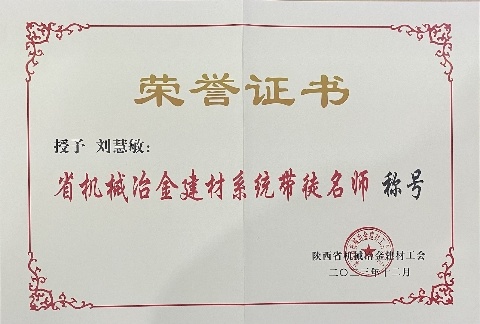 荣誉证书
授予 刘慧敏:
省机械冶金建材系统带徒名师 称号
陕西省机械冶金建材工会
二〇二三年十二月